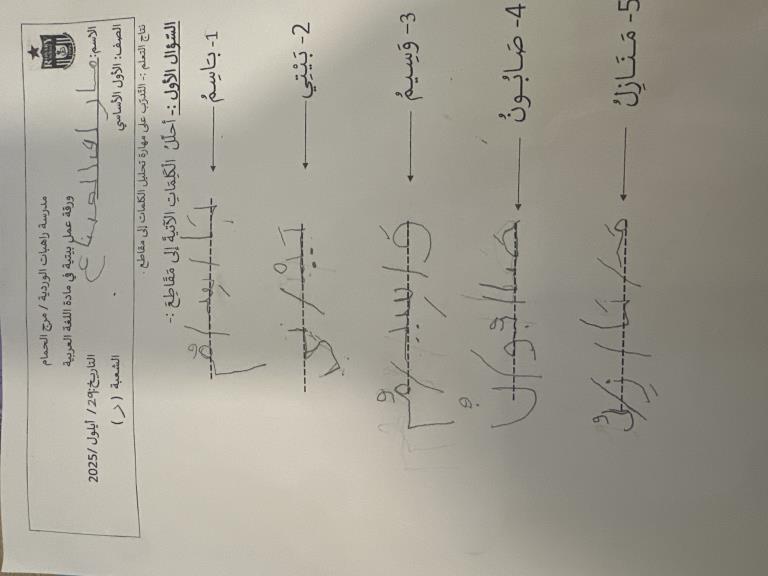 مدرسة راهبات الوردية / مرج الحمام
ورقة عمل بيتية في مادة اللغة العربية
الاسم: التاريخ: 29/ أيلول /2025
الصف: الأول الأساسي . الشعبة (ر)
نتاج التعلم :- التدرّب على مهارة تحليل الكلمات إلى مقاطع .
السّؤال الأول :- أحلّلُ الْكَلِمَاتِ الْآتِيَةَ إلى مَقَاطِعَ :-
1- بَاسِمُ بَا / سِـ / مُ
2- بَيْتِي بَيْـ / تي
3- وَسِيمُ وَ / سيـ / مُ
4- صَابُونُ صَا / بو / نُ
5- مَنَازِلُ مَـ / نَا / زِ / لُ